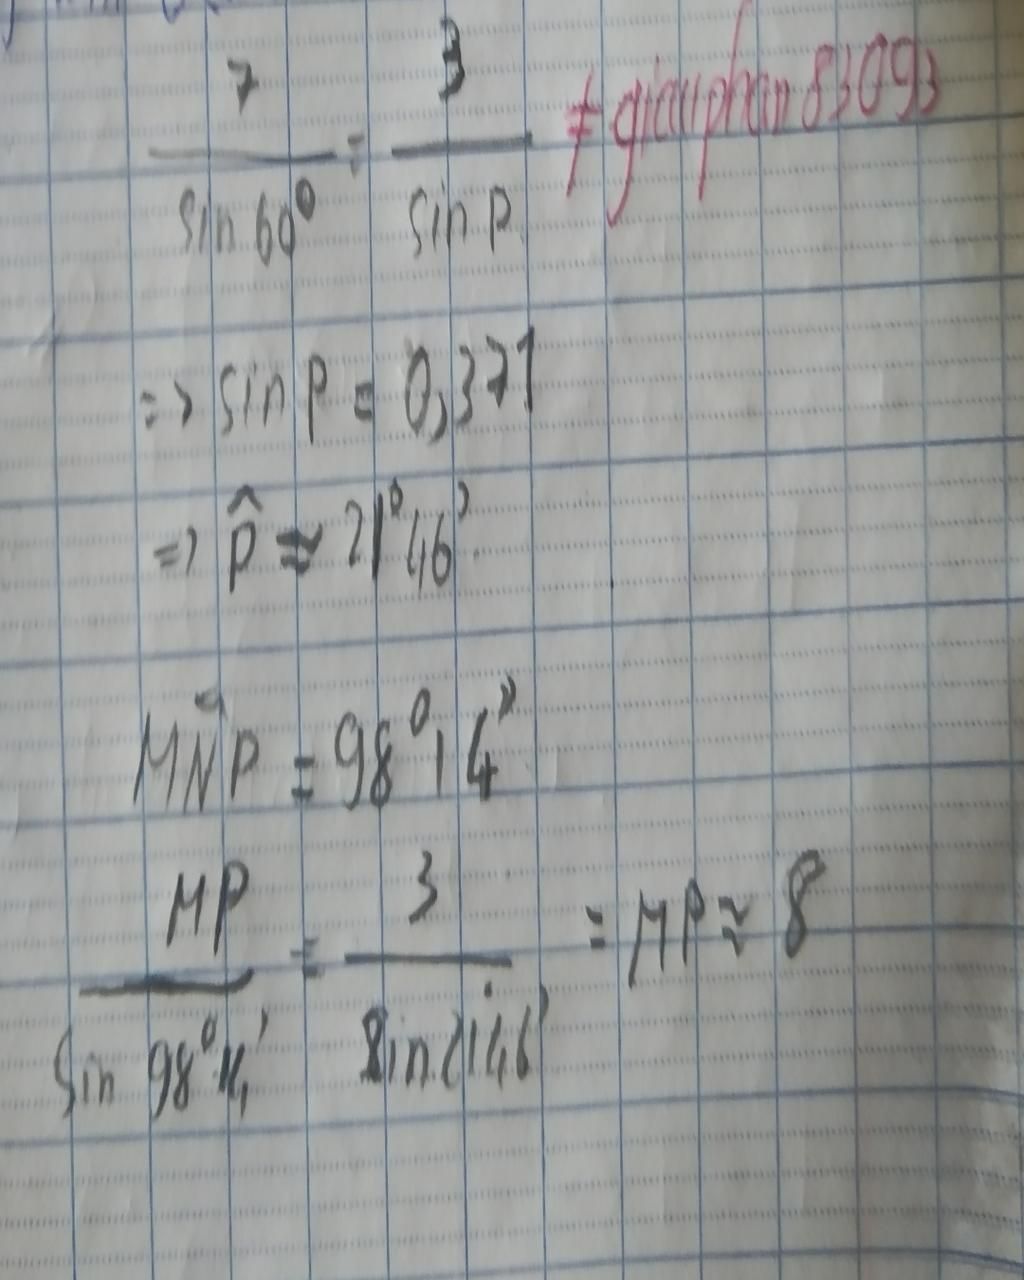 7/sin 60⁰ = 3/sin P #giauphan83093
=> sin P = 0,371
=> P̂ ≈ 21⁰46'
MN̂P = 98⁰14'
MP/sin 98⁰14' = 3/sin 21⁰46' = MP ≈ 8